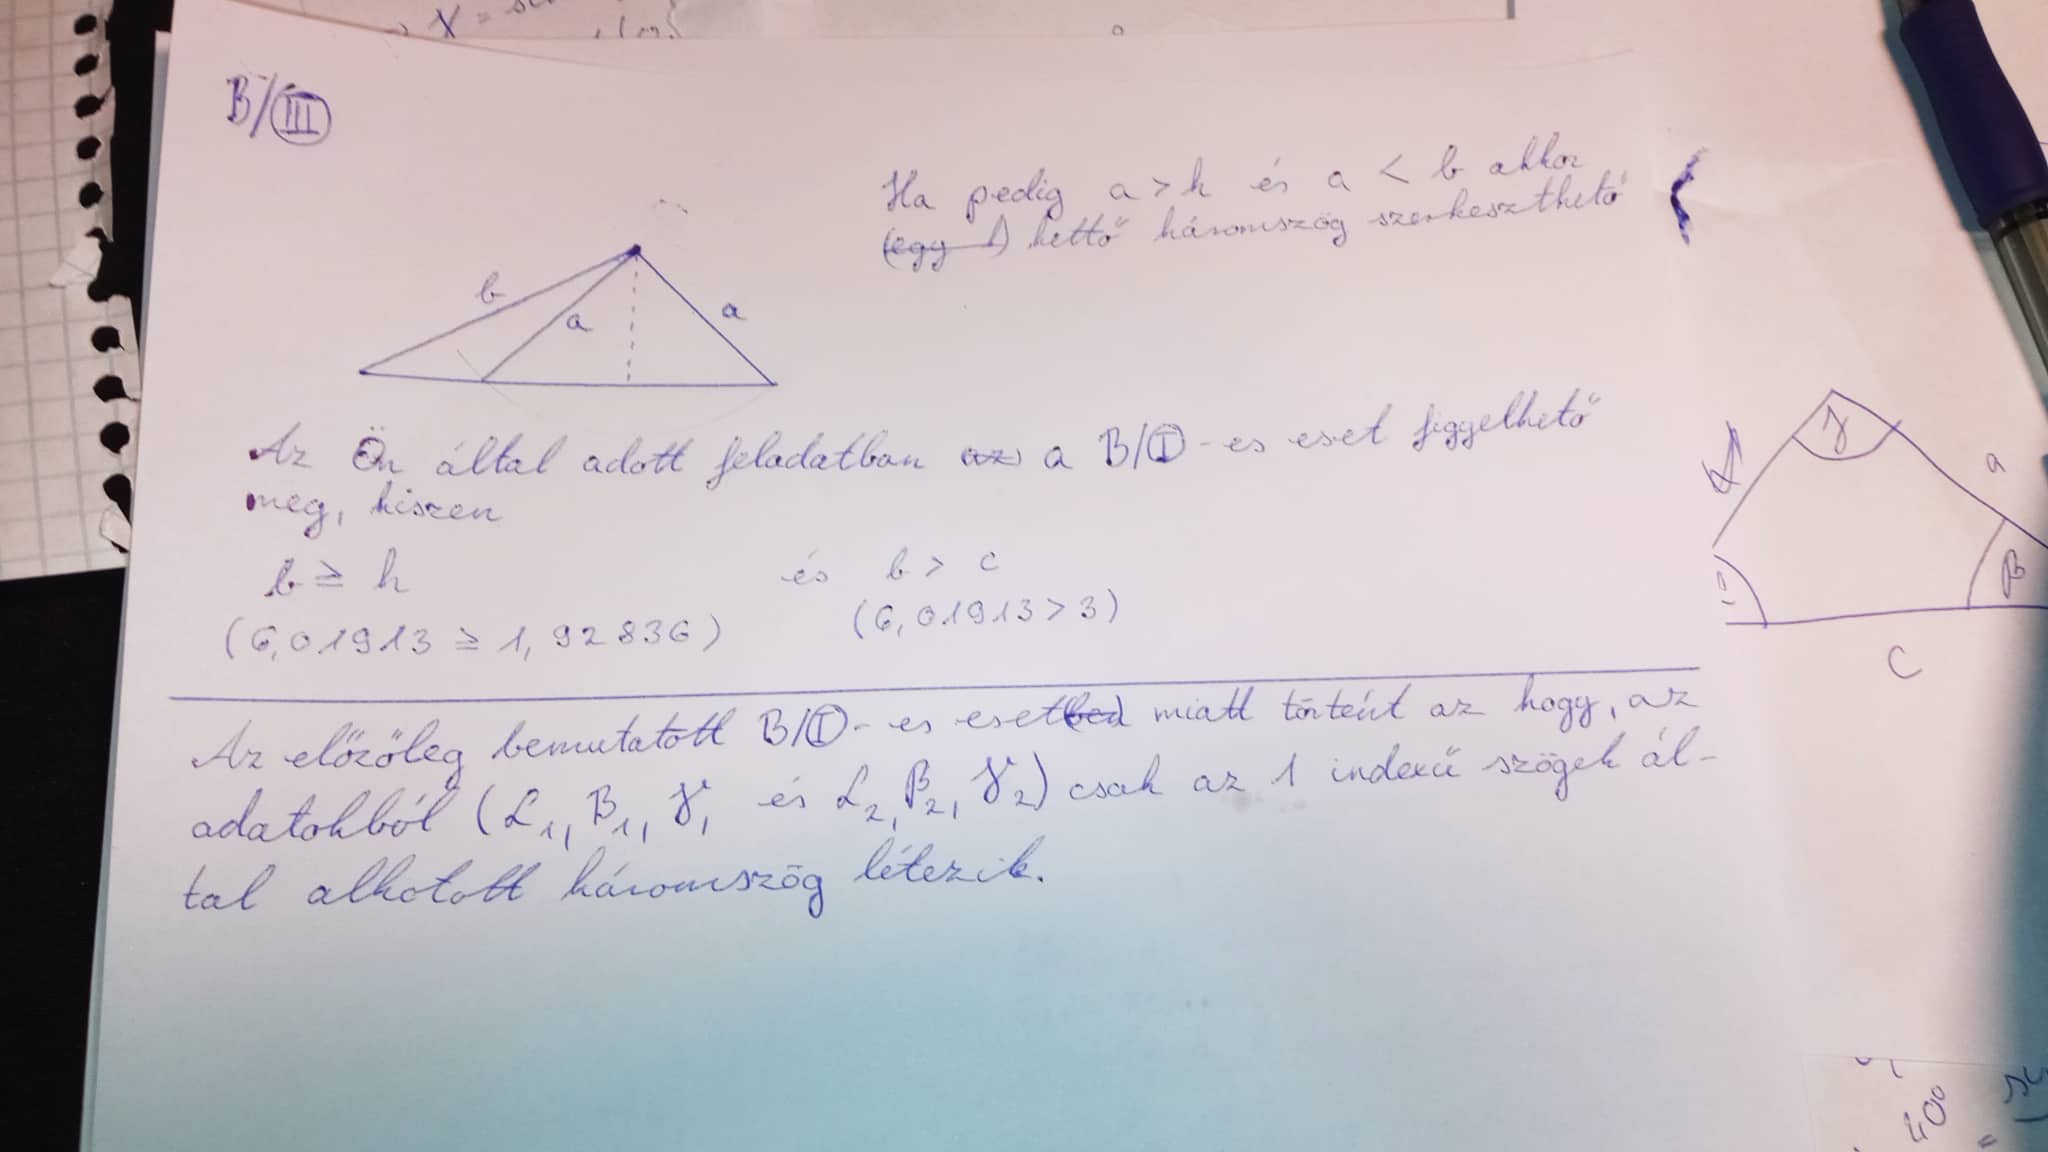 B/III
Ha pedig a > h és a < b akkor
(egy 1) kettő háromszög szerkeszthető
b
a
a
Az Ön által adott feladatban az a B/I-es eset figyelhető
meg, hiszen
b ≥ h és b > c
(6,01913 ≥ 1,92836) (6,01913 > 3)
Az előzőleg bemutatott B/I-es esetben miatt történt az hogy, az
adatokból (α1, β1, γ1 és α2, β2, γ2) csak az 1 indexű szögek ál-
tal alkotott háromszög létezik.
γ
a
β
c
40°
=